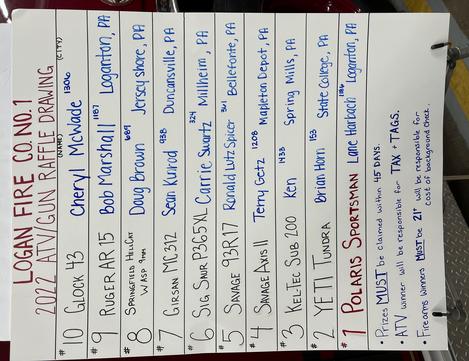 LOGAN FIRE CO. NO. 1
2022 ATV/GUN RAFFLE DRAWING
(NAME) (CITY)
#10 GLOCK 43 Cheryl McWade 1306
#9 RUGER AR15 Bob Marshall 1187 Loganton, PA
#8 SPRINGFIELD HELLCAT W/ WASP 9mm Doug Brown 669 Jersey shore, PA
#7 GIRSAN MC312 Sean 938 Duncansville, PA
#6 SIG SAUR P365XL Carrie Swartz 324 Millheim, PA
#5 SAVAGE 93R17 Ronald Lutz Spicer Bellefonte, PA
#4 SAVAGE AXIS II Terry Getz 1208 Mapleton Depot, PA
#3 KEL-TEC SUB 200 Ken 1438 Spring Mills, PA
#2 YETI TUNDRA Brian Horn 953 State College, PA
#1 POLARIS SPORTSMAN Lane Harbach 1186 Loganton, PA
• Prizes MUST be claimed within 45 DAYS.
• ATV winner will be responsible for TAX + TAGS.
• Firearms winners MUST be 21+ will be responsible for
cost of background check.